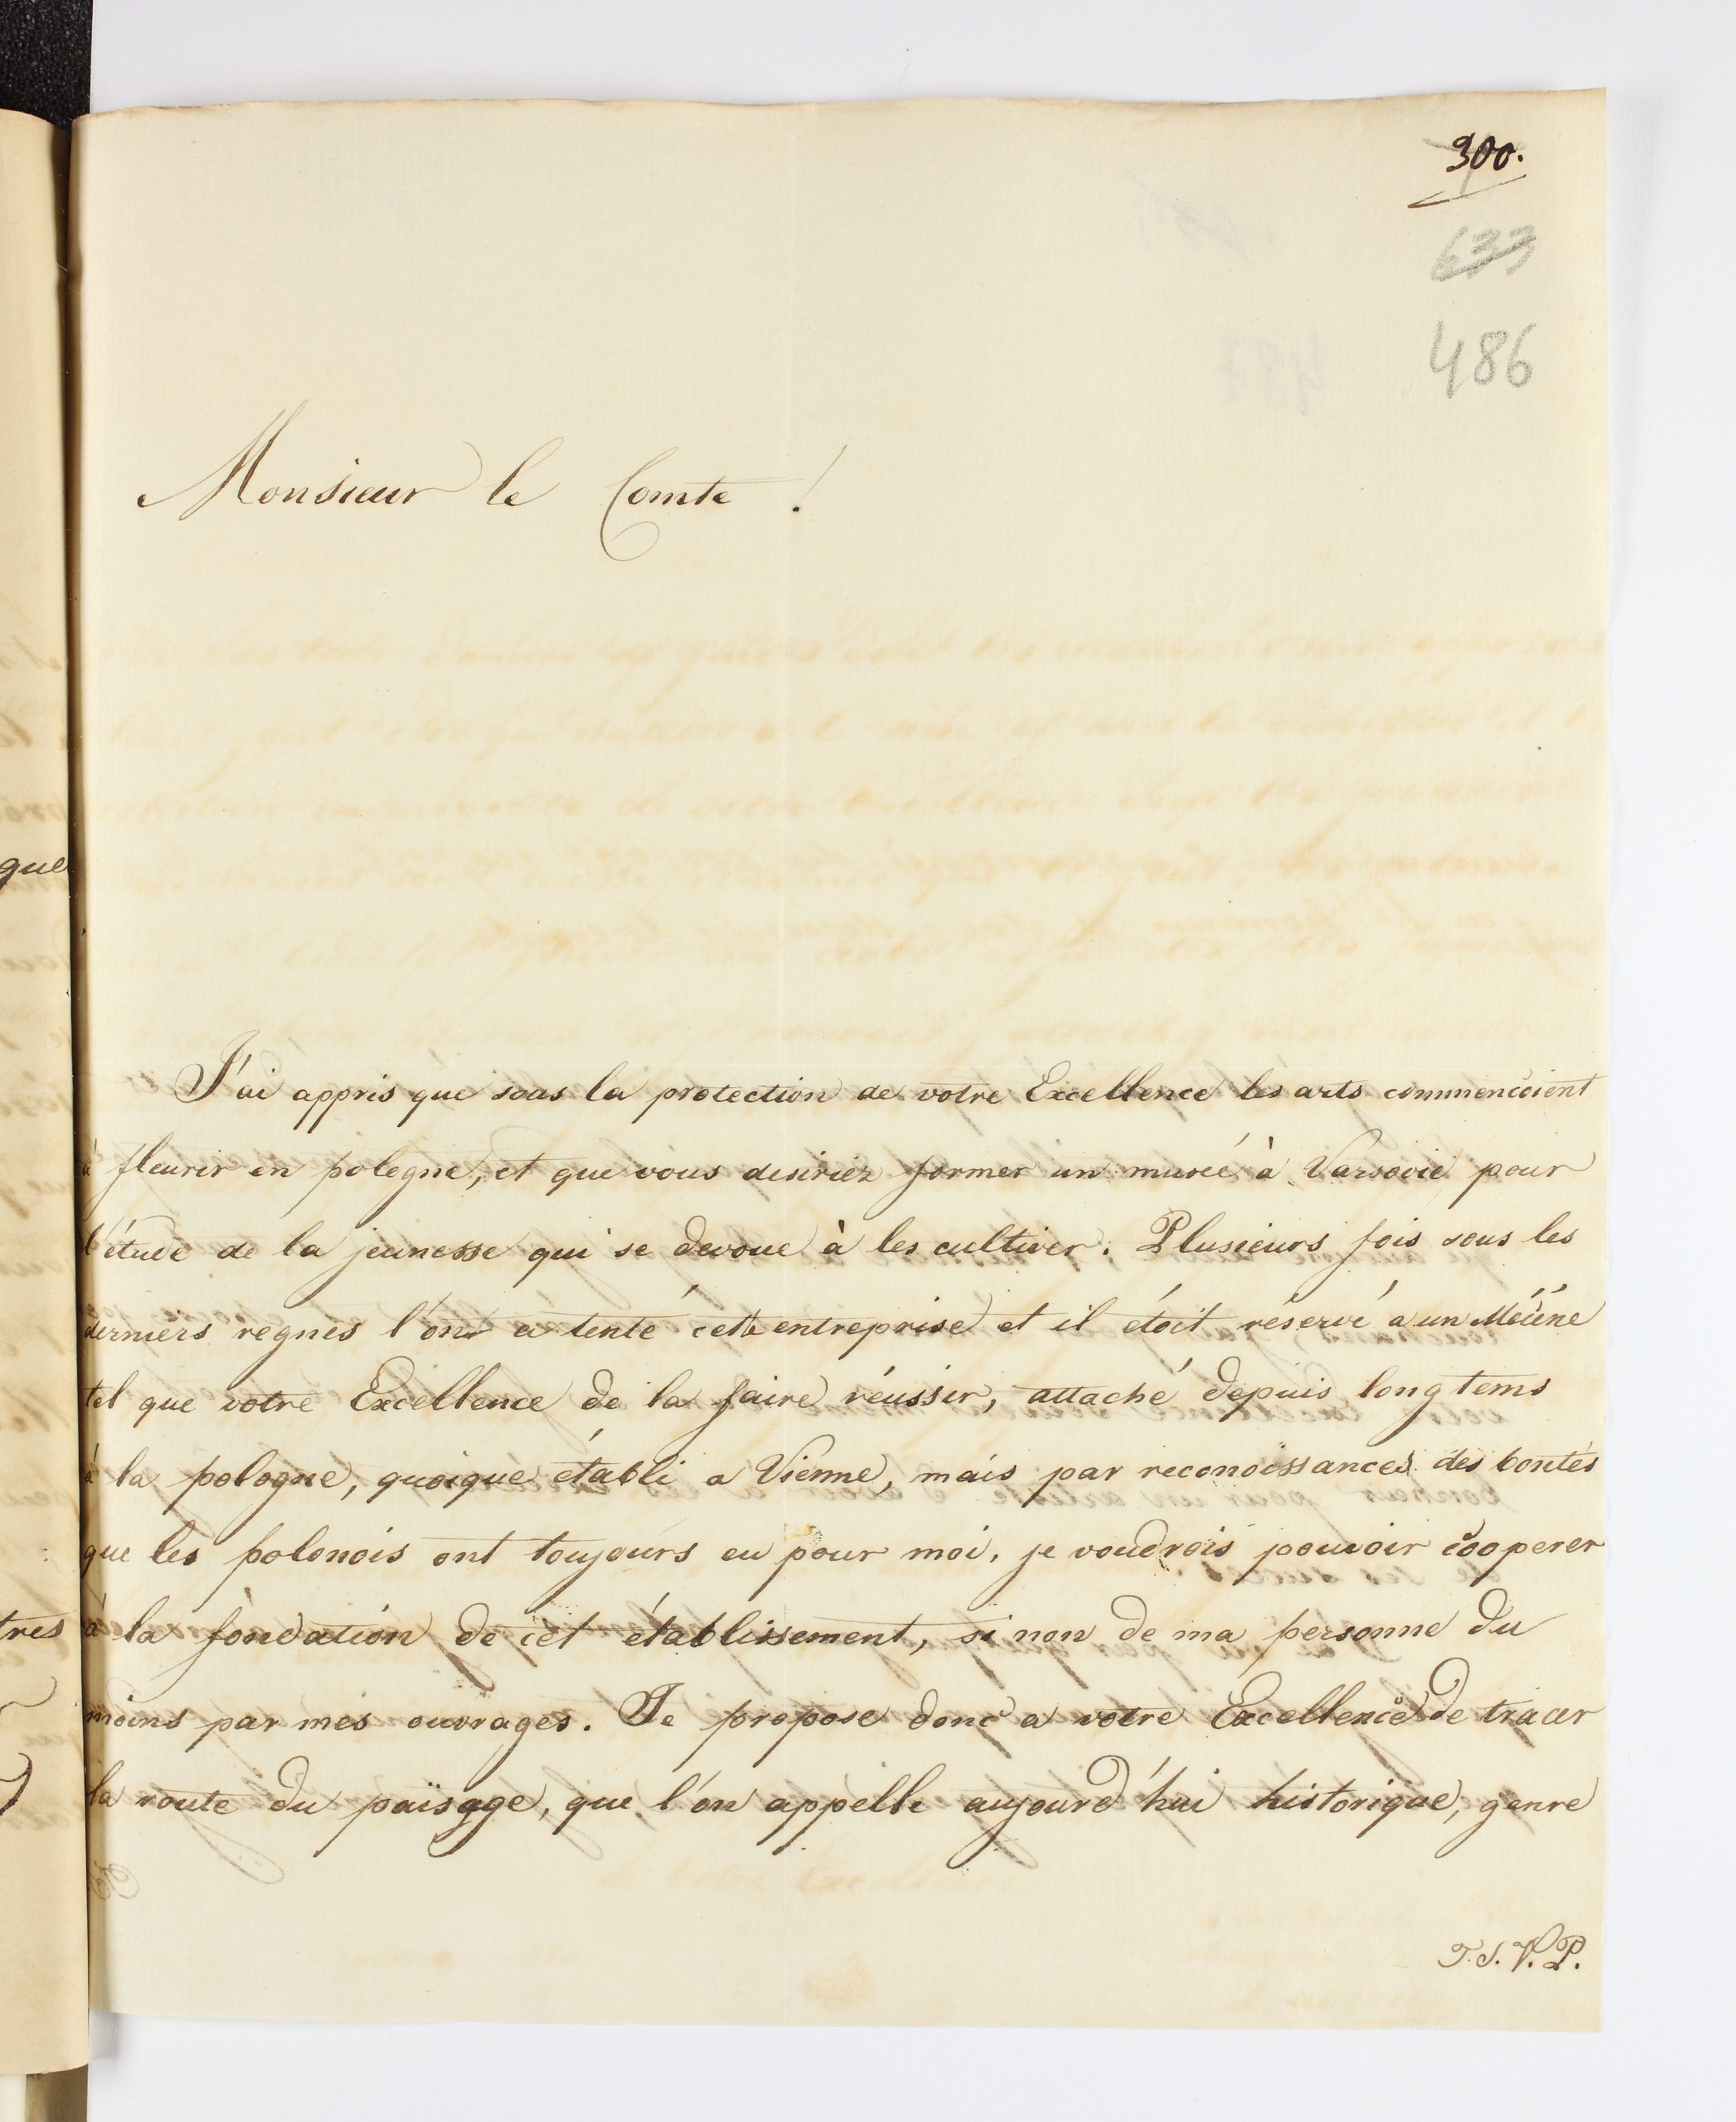 300.
633
486
Monsieur le Comte !
J'ai appris que sous la protection de votre Excellence les arts commencoient
à fleurir en pologne, et que vous desiriez former un museé à Varsovie pour
l'étude de la jeunesse qui se devoue à les cultiver. Plusieurs fois sous les
derniers regnes l'on a tenté cette entreprise et il étoit réservé a un Mécéne
tel que votre Excellence de la faire réussir, attaché depuis long tems
à la pologne, quoique établi a Vienne, mais par reconoissances des bontés
que les polonois ont toujours eu pour moi, je voudrois pouvoir cooperer
à la fondation de cet établissement, si non de ma personne du
moins par mes ouvrages. Je propose donc a votre Excellence de tracer
la route du païsage, que l'on appelle aujourd'hui historique, genre
T. S. V. P.
que
tres